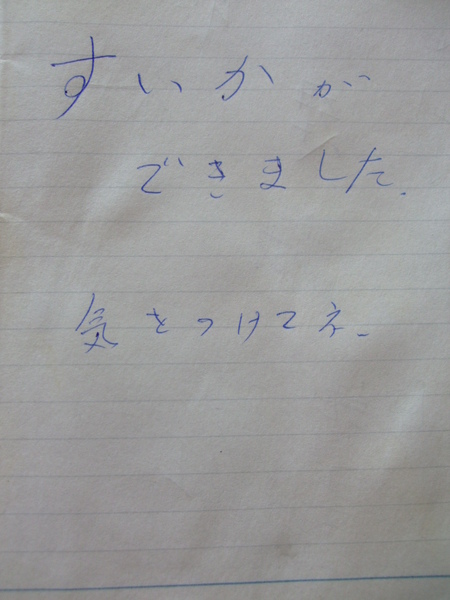 すいかが
できました.
気をつけてネ.